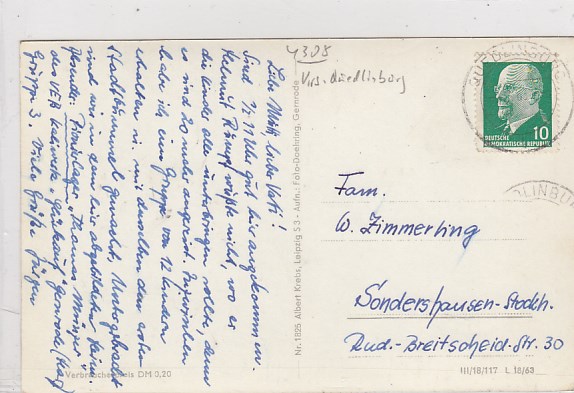 Liebe Mutti, lieber Vati!
Sind ½ 11 Uhr gut hier angekommen.
Helmut Rümpf wußte nicht, wo er
die Kinder alle unterbringen sollte, denn
es sind 20 mehr angereist. Inzwischen
habe ich eine Gruppe von 12 Kindern
erhalten u. mit denselben den ersten
Stadtbummel gemacht. Untergebracht
sind wir in dem hier abgebildeten Heim.
Pionierlager "Thomas Müntzer"
des VEB "Glückauf" Gernrode (Harz)
Gruppe 3. Viele Grüße Jürgen
Verbraucherpreis DM 0,20
Nr. 1825 Albert Krebs, Leipzig S 3 - Aufn.: Foto-Doehring, Gernrode
4308
Krs. Quedlinburg
QUEDLINBURG
10
DEUTSCHE
DEMOKRATISCHE REPUBLIK
DLINBU
Fam.
W. Zimmerling
Sondershausen-Stockh.
Rud.-Breitscheid-Str. 30
III/18/117 L 18/63